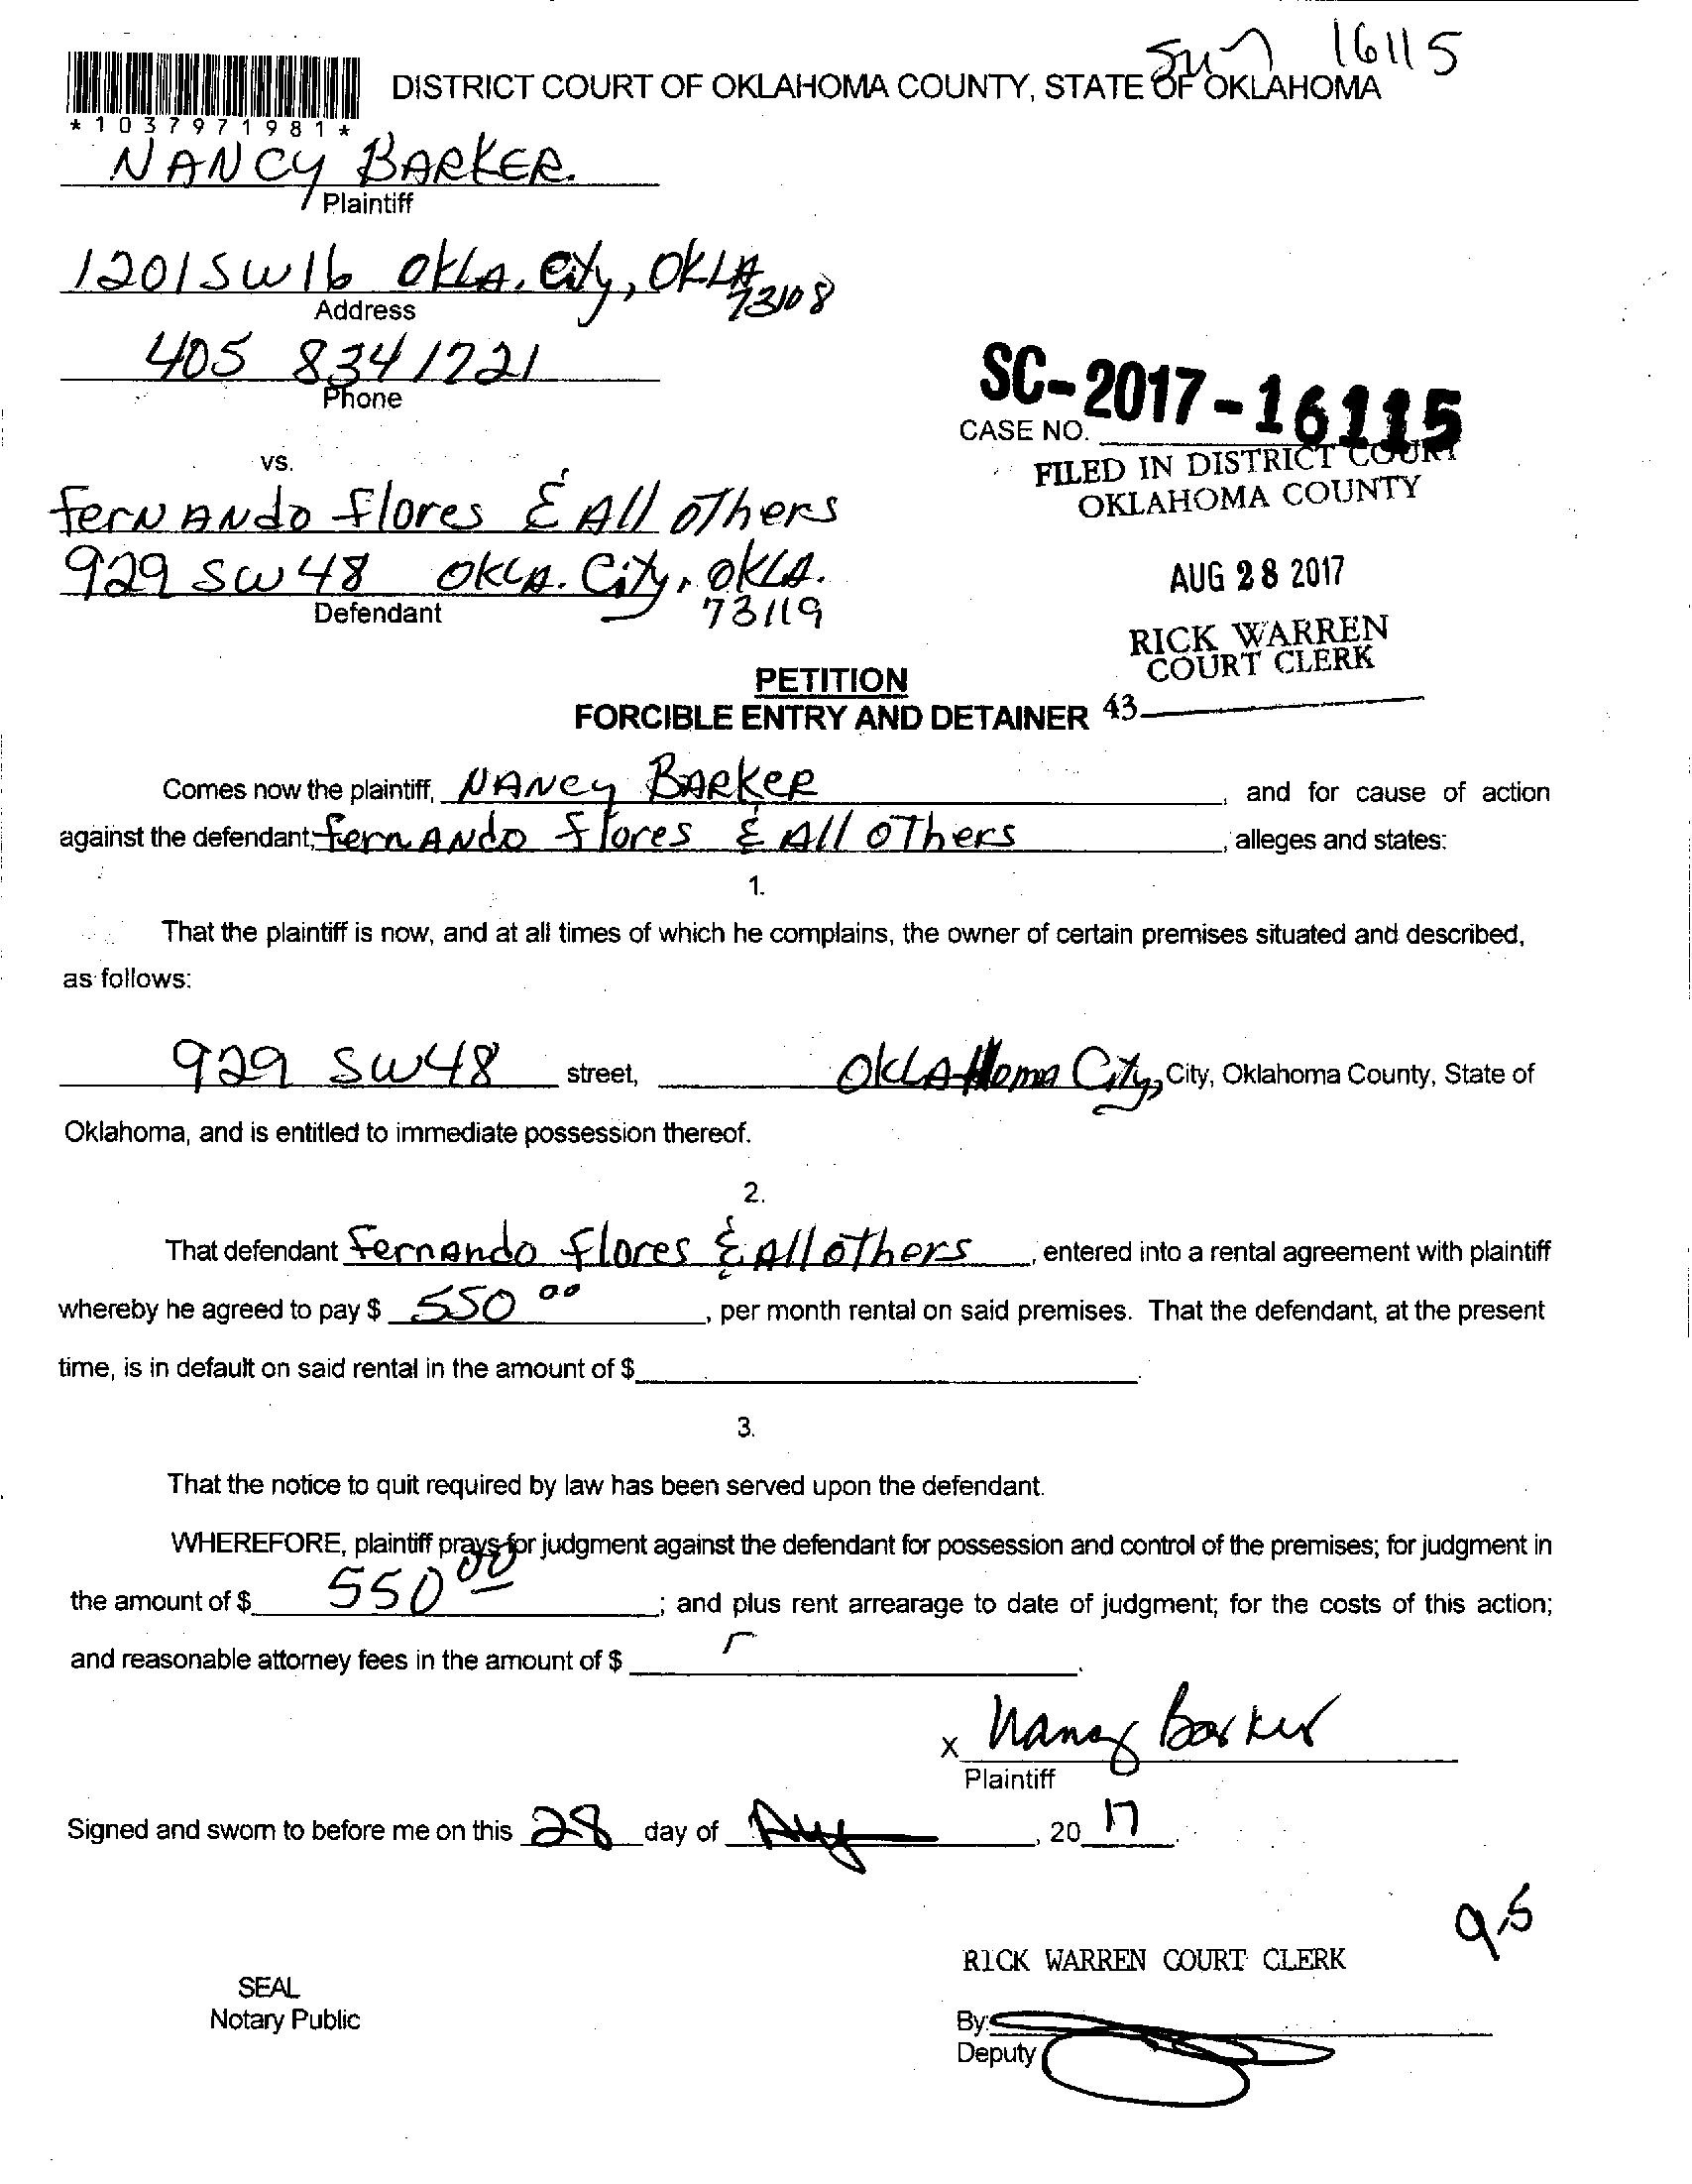 16115
DISTRICT COURT OF OKLAHOMA COUNTY, STATE OF OKLAHOMA
*1037971981*
NANCY BARKER.
Plaintiff
1201 SW 16 OKLA. City, OKLA 73108
Address
405 834 1721
Phone
SC-2017-16115
CASE NO.
FILED IN DISTRICT COURT
OKLAHOMA COUNTY
vs.
FerNANdo Flores & All OThers
929 SW 48 OKLA. City, OKLA.
73119
Defendant
AUG 28 2017
RICK WARREN
COURT CLERK
PETITION
FORCIBLE ENTRY AND DETAINER 43
Comes now the plaintiff, NANcy BARKeR, and for cause of action
against the defendant, FernANdo Flores & All OThers, alleges and states:
1.
That the plaintiff is now, and at all times of which he complains, the owner of certain premises situated and described,
as follows:
929 SW48 street, OKLAHoma City, City, Oklahoma County, State of
Oklahoma, and is entitled to immediate possession thereof.
2.
That defendant Fernando Flores & All others, entered into a rental agreement with plaintiff
whereby he agreed to pay $ 550 00, per month rental on said premises. That the defendant, at the present
time, is in default on said rental in the amount of $
3.
That the notice to quit required by law has been served upon the defendant.
WHEREFORE, plaintiff prays for judgment against the defendant for possession and control of the premises; for judgment in
the amount of $ 550 00; and plus rent arrearage to date of judgment; for the costs of this action;
and reasonable attorney fees in the amount of $.
x Nancy Barker
Plaintiff
Signed and sworn to before me on this 28 day of Aug, 20 17
9.5
RICK WARREN COURT CLERK
SEAL
Notary Public
By:
Deputy